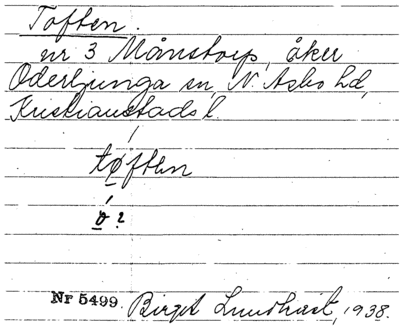 Toften.
nr 3 Månstorp, åker
Oderljunga sn, N. Åsbo hd,
Kristianstads l.
tøften
ø ?
Nr 5499. Birget Lundkvist, 1938.